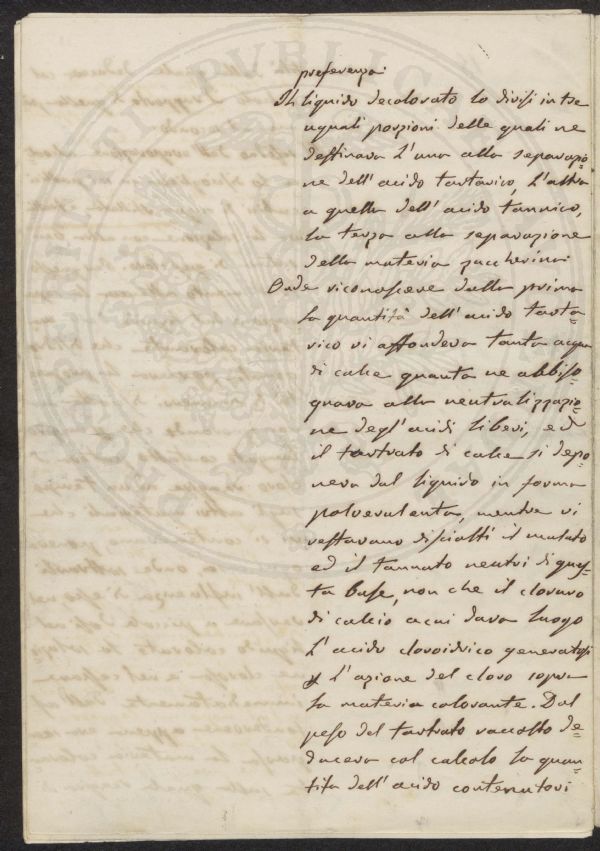 preferenza.
Il liquido decolorato lo divisi in tre
uguali porzioni delle quali ne
destinava l'una alla separazio=
ne dell'acido tartarico, l'altra
a quella dell'acido tannico,
la terza alla separazione
della materia zuccherina.
Onde riconoscere dalla prima
la quantità dell'acido tarta=
rico vi affondeva tanta acqua
di calce quanta ne abbiso=
gnava alla neutralizzazio=
ne degl'acidi liberi, ed
il tartrato di calce si depo=
neva dal liquido in forma
polverulenta, mentre vi
restavano disciolti il malato
ed il tannato neutri di ques=
ta base, non che il cloruro
di calcio a cui dava luogo
l'acido cloroidrico generatosi
l'azione del cloro sopra
la materia colorante. Dal
peso del tartrato raccolto de=
duceva col calcolo la quan=
tità dell'acido contenutovi